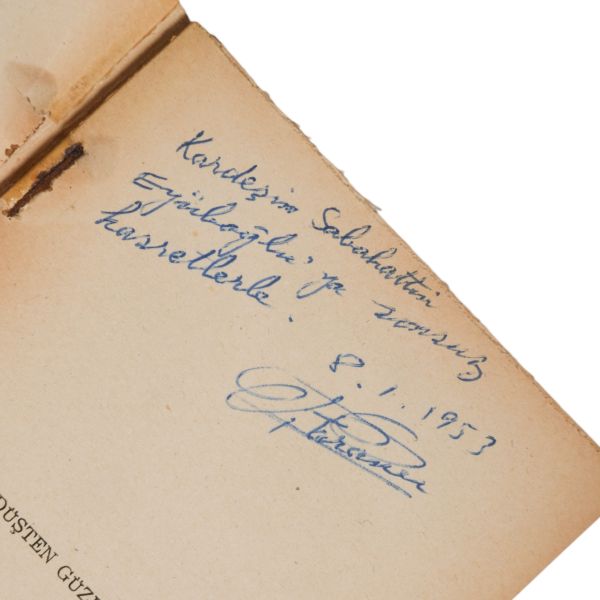 Kardeşim Sabahattin
Eyüboğlu'ya sonsuz
hasretlerle.
8.1.1953
DÜŞTEN GÜZ